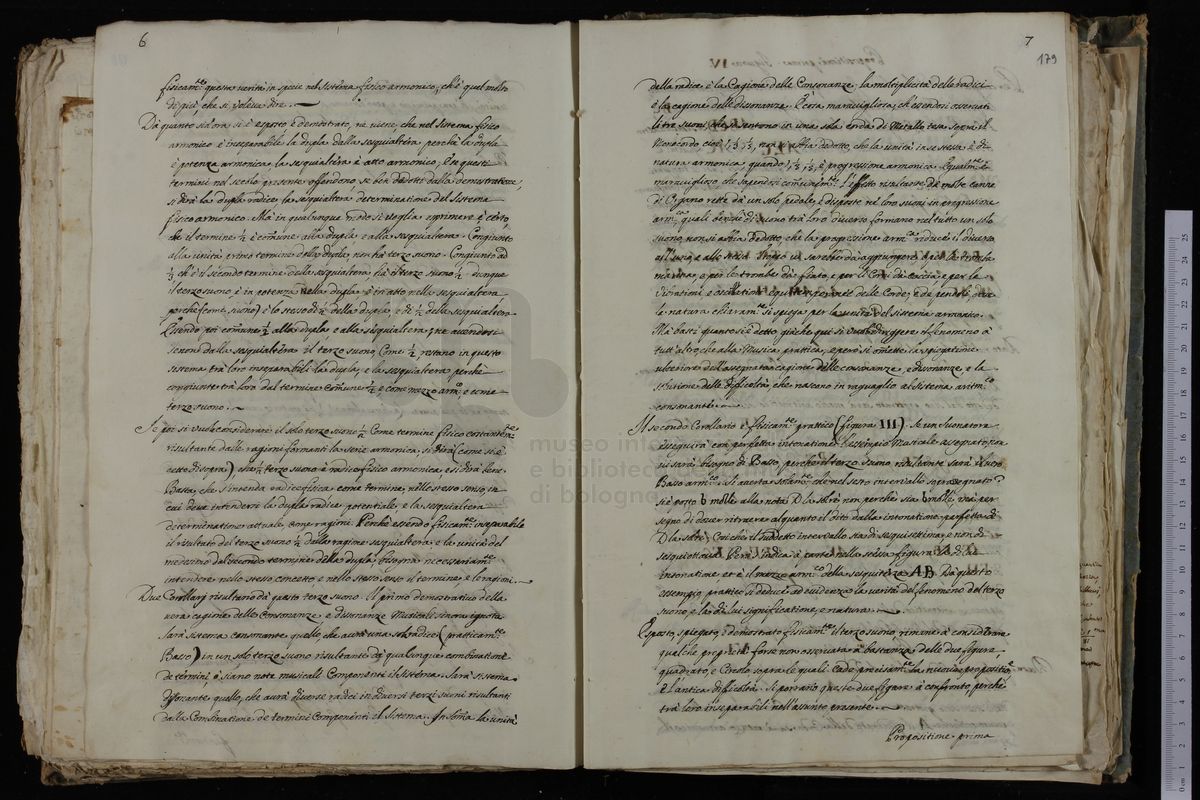 6
fisicam.te questa verità in specie nel sistema fisico armonico, ch'è quel molto
di più, che si voleva dire.
Da quanto sin'ora si è esposto e demostrato, ne viene, che nel sistema fisico
armonico è inseparabile la dupla dalla sesquialtera, perchè la dupla
è potenza armonica, la sesquialtera è atto armonico; e se questi
termini nel secolo presente offendono se ben dedotti dalla demostratione,
si dirà la dupla radice, la sesquialtera determinatione del sistema
fisico armonico. Mà in qualunque modo si voglia esprimere è certo,
che il termine ½ è comune alla dupla, e alla sesquialtera. Congiunto
alla unità prima termine della dupla, non hà terzo suono. Congiunto ad
⅓ ch'è il secondo termine della sesquialtera hà il terzo suono ½. dunque
il terzo suono è in potenza nella dupla, è in atto nella sesquialtera
perche (come suono) è lo stesso di ½ della dupla, e di ½ della sesquialtera
Essendo poi comune ½ alla dupla, e alla sesquialtera; ne avendosi
senon dalla sesquialtera il terzo suono, come ½, restano in questo
sistema trà loro inseparabili la dupla, e la sesquialtera, perchè
congiunte trà loro dal termine comune ½, e come mezzo arm.co e come
terzo suono.
Se poi si vuole considerare il solo terzo suono ½ come termine fisico costantem.te
risultante dalle ragioni formanti la serie armonica, si dirà (come si è
detto di sopra) che ½ terzo suono è radice fisico armonica, e si dirà bene.
Basta, che s'intenda radice fisica come termine, nello stesso senso, in
cui deve intendersi la dupla radice potentiale, e la sesquialtera
determinatione attuale, come ragioni. Perchè essendo fisicam.te inseparabile
il risultato del terzo suono ½ dalla ragione sesquialtera, e la unità del
medesimo dal secondo termine della dupla, bisogna necessariam.te
intendere nello stesso concetto, e nello stesso senso il termine, e le ragioni.
Due Corollarj risultano da questo terzo suono. Il primo demostrativo della
vera cagione delle Consonanze, e disonanze Musicali sinora ignota.
Sarà sistema consonante quello, che avrà una sola radice (pratticam.te
Basso) in un solo terzo suono risultante da qualunque combinatione
de termini, ò siano note musicali componenti il sistema. Sarà sistema
dissonante quello, che avrà diverse radici in diversi terzi suoni risultanti
dalla Combinatione de termini componenti il sistema. In somma la unità
7
179
della radice è la Cagione delle Consonanze, la moltiplicità delle radici
è la cagione delle dissonanze. È cosa maravigliosa, ch'essendosi osservati
li tre suoni, che si sentono in una sola corda di Metallo tesa sopra il
Monocordo cioè 1, ⅓, ⅕, non si abbia dedotto, che la unità in se stessa è di
natura armonica, quando 1, ⅓, ⅕, è progressione armonica. Equalm.te è
maraviglioso, che sapendosi comunem.te l'effetto risultante da molte canne
di Organo rette da un solo pedale, e disposte ne loro suoni in progressione
arm.ca quali benchè di suono trà loro diverso formano nel tutto un sol
suono, non si abbia dedotto, che la progressione arm.ca riduce il diverso
all'unità, e allo stesso. Troppo vi sarebbe da aggiungere per la tromba
marina, e per le trombe da fiato, e per li Corni da caccia, e per le
vibrationi, e oscillationi equitemporanee delle Corde, e de pendoli, dove
la natura chiaram.te si spiega per la unità del sistema armonico.
Mà basti quanto si è detto, giàche qui si vuol dirigere il fenomeno à
tutt'altro, che alla Musica prattica, e però si omette la spiegatione
ulteriore dell'assegnata cagione delle consonanze, e disonanze, e la
solutione delle difficoltà, che nascono in ragguaglio al sistema aritm.co
consonante.
Il secondo Corollario è fisicam.te prattico (figura III). Se un Suonatore
eseguirà con perfetta intonatione l'esempio Musicale assegnato, non
vi sarà bisogno di Basso, perche il terzo suono risultante sarà il vero
Basso arm.co Si avverta solam.te, che nel sesto intervallo sopra segnato?
si è posto b molle alla nota D la solrè non perchè sia b molle, mà per
segno di dover ritraere alquanto il dito dalla intonatione perfetta di
D la solrè, cosichè il suddetto intervallo sia di sesquisettima, e non di
sesquiottava. Però l'indica à parte nella stessa figura la di lui
intonatione, et è il mezzo arm.co della sesquiterza AB. Da questo
essempio prattico si deduce ad evidenza la verità del fenomeno del terzo
suono, e la di lui significatione, e natura.
Esposto, spiegato, e demostrato fisicam.te il terzo suono, rimane à considerare
qualche proprietà forse non osservata à bastanza delle due figure,
quadrato, e Circolo, sopra le quali cade precisam.te la nuova propositio.e
e l'antica difficoltà. Si porranno queste due figure à confronto, perchè
trà loro inseparabili nell'assunto presente.
Propositione prima
museo
e biblioteca
di bologna